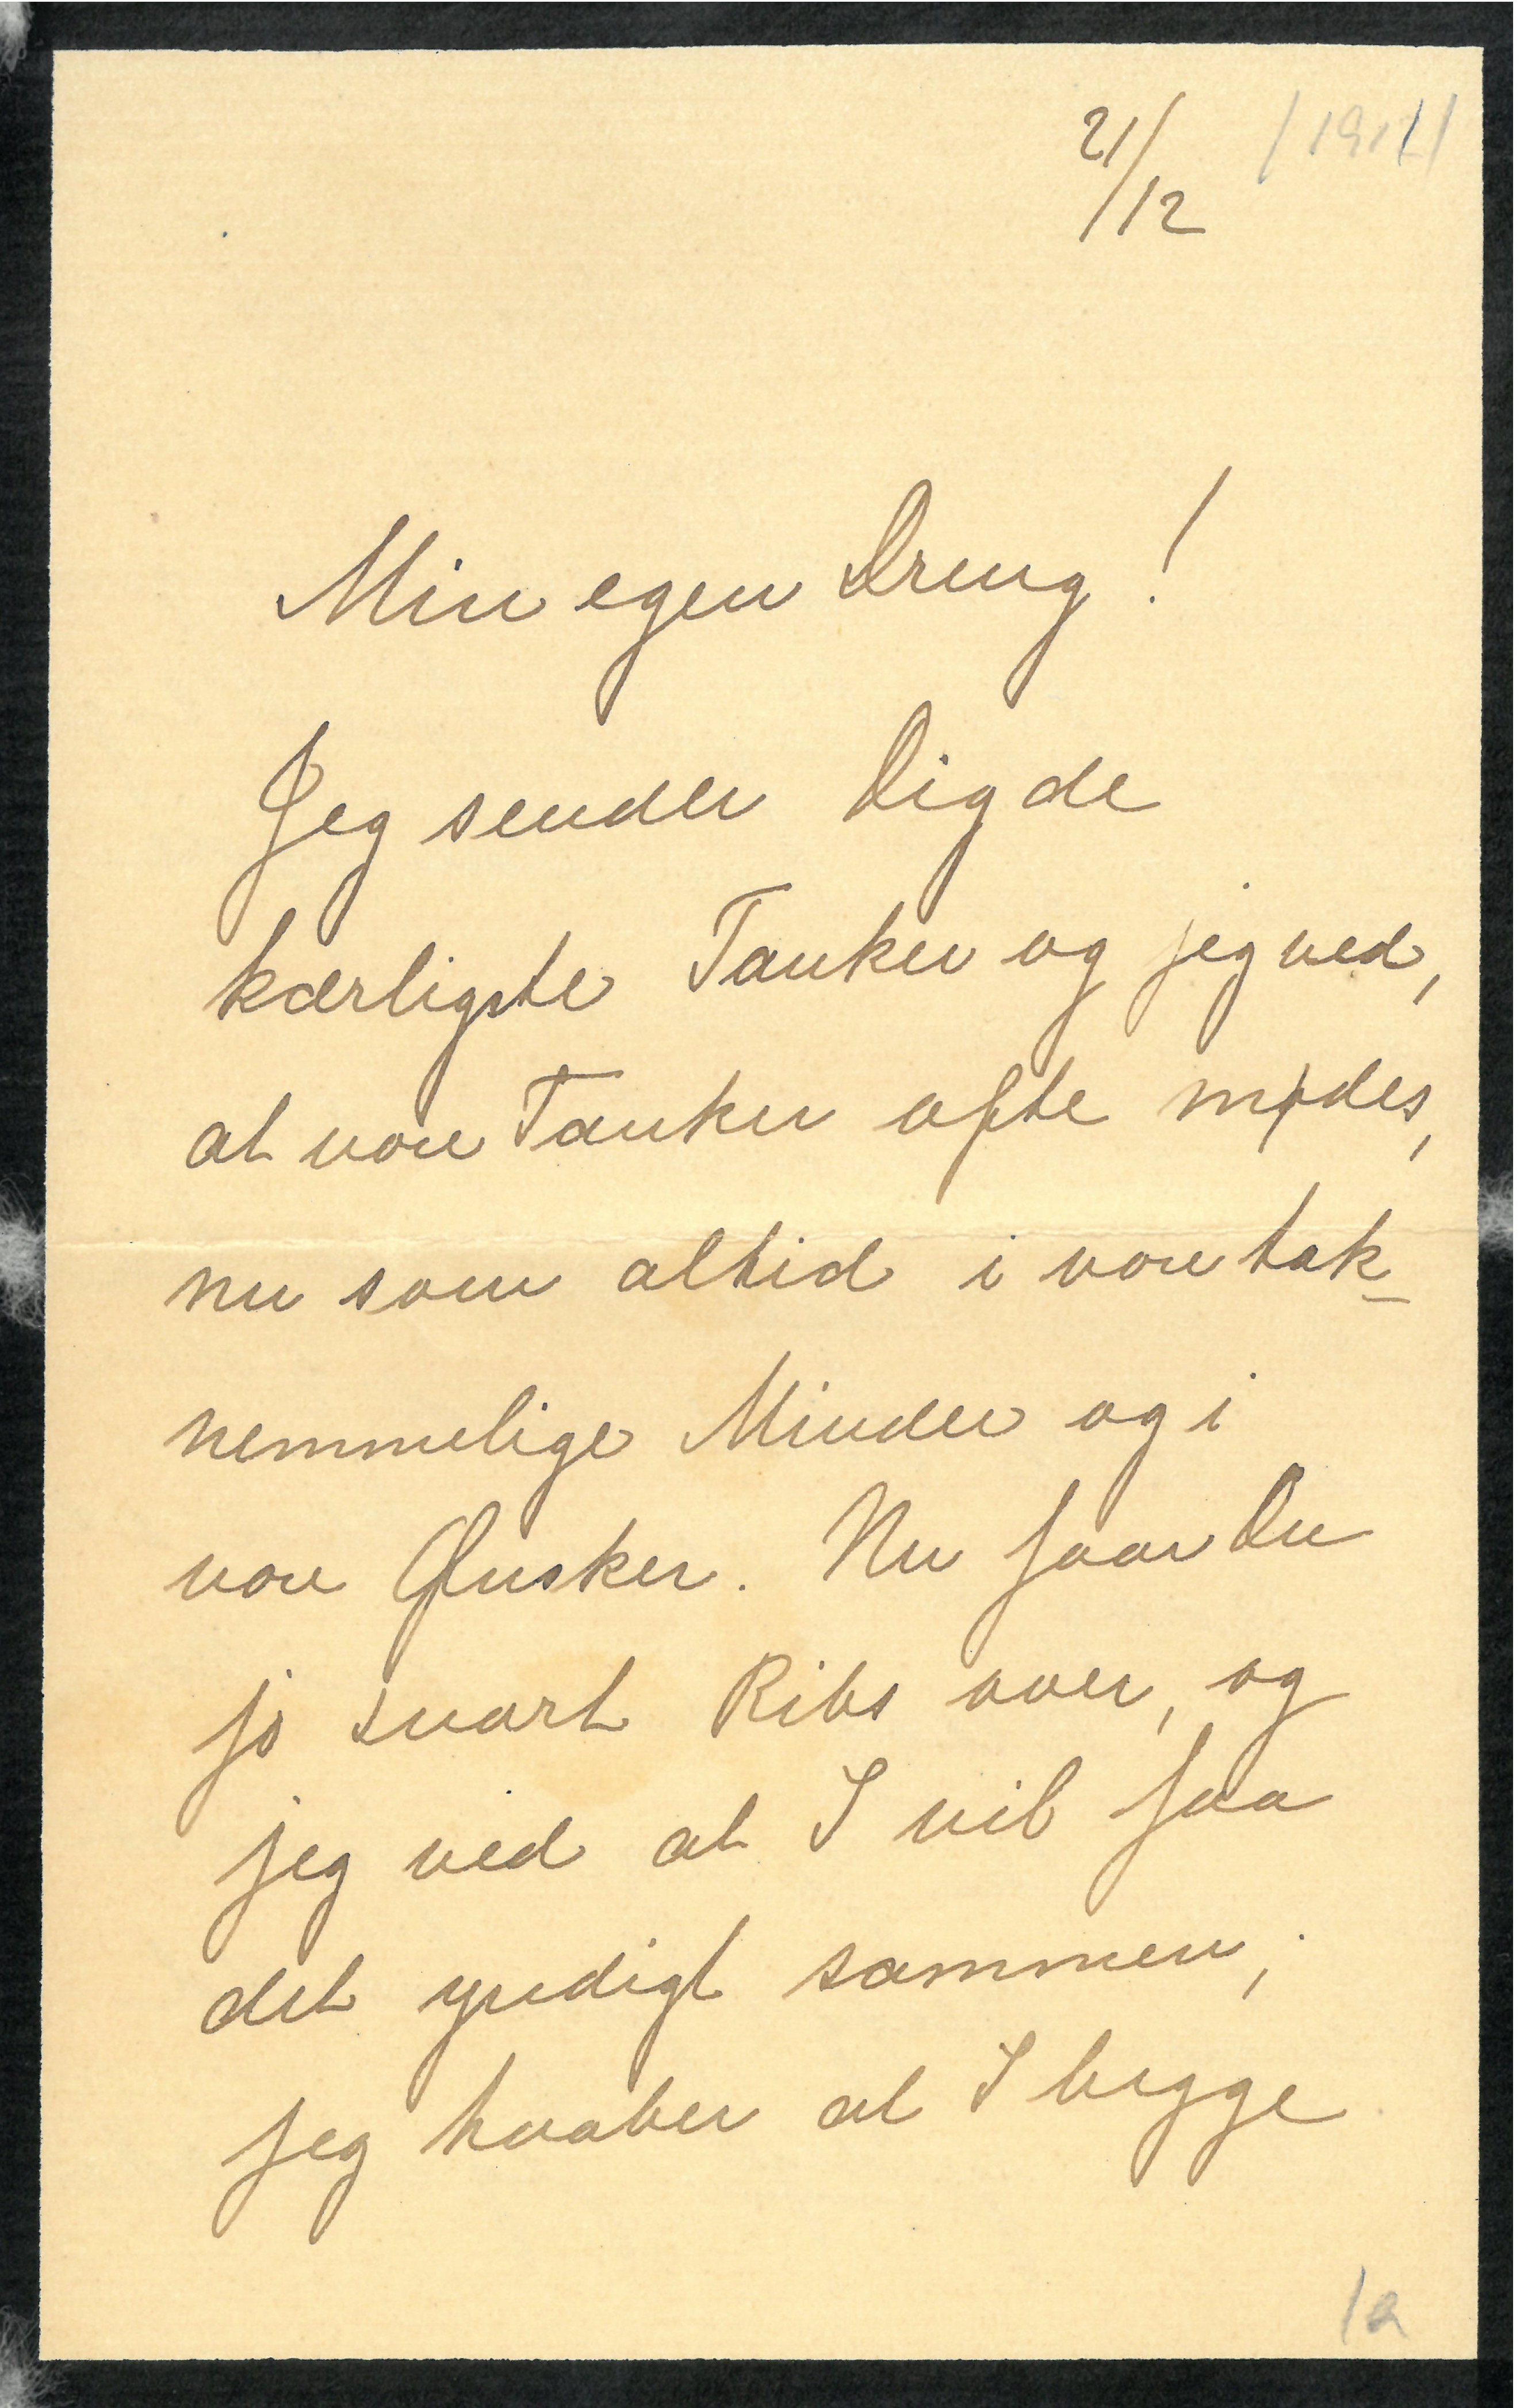 21/12
Min egen Dreng!
Jeg sender Dig de
kærligste Tanker og jeg ved,
at vore Tanker ofte mødes,
nu som altid i vore tak-
nemmelige Minder og i
vore Ønsker. Nu faar Du
jo snart Ribs over, og
jeg ved at I vil faa
det yndigt sammen;
jeg haaber at I begge